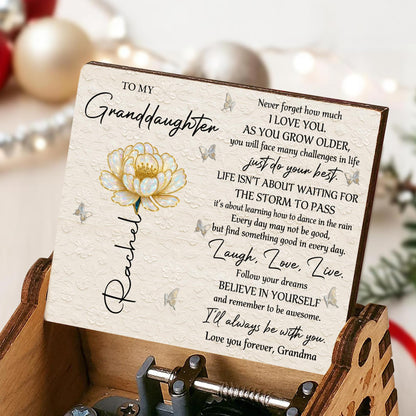 TO MY
Granddaughter
Rachel
Never forget how much
I LOVE YOU.
AS YOU GROW OLDER,
you will face many challenges in life
just do your best.
LIFE ISN'T ABOUT WAITING FOR
THE STORM TO PASS
it's about learning how to dance in the rain
Every day may not be good,
but find something good in every day.
Laugh, Love, Live.
Follow your dreams
BELIEVE IN YOURSELF
and remember to be awesome.
I'll always be with you.
Love you forever, Grandma